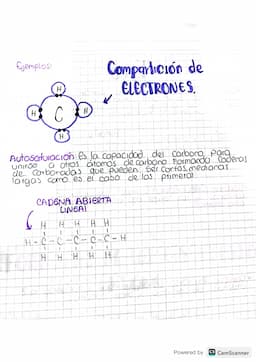 Ejemplos:
Compartición de
ELECTRONES.
H
H C H
H
Autosaturación: Es la capacidad del carbono para
unirse a otros átomos de carbono formando cadenas
de carbonadas que pueden ser cortas, medianas
largas como es el caso de las primeras.
CADENA ABIERTA
LINEAL
H H H H H
H-C-C-C-C-C-H
H H H H H
Powered by CS CamScanner